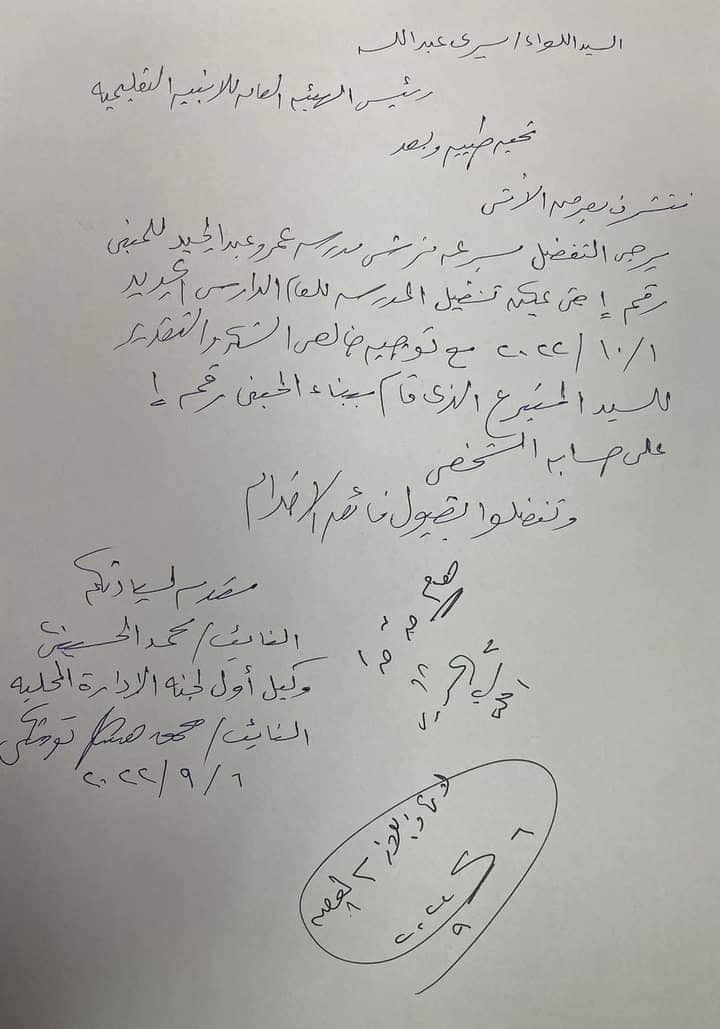 السيد اللواء / يسرى عبد الله
رئيس الهيئه العامه للابنيه التعليميه
تحيه طيبه وبعد
نتشرف بعرض الأتى
يرجى التفضل بسرعه فرش مدرسه عمرو عبد الحميد للمبنى
رقم إ حتى يمكن تشغيل المدرسه للعام الدارسى الجديد
١/١٠/٢٠٢٢ مع توجيه خالص الشكر والتقدير
للسيد المتبرع الذى قام ببناء المبنى رقم إ
على حسابه الشخصى
وتفضلوا بقبول فائق الاحترام
مقدمه لسيادتكم
النائب / محمد الحسينى
وكيل أول لجنه الادارة المحليه
النائب / محمد
٦/٩/٢٠٢٢
٦
٩
٢٠٢٢